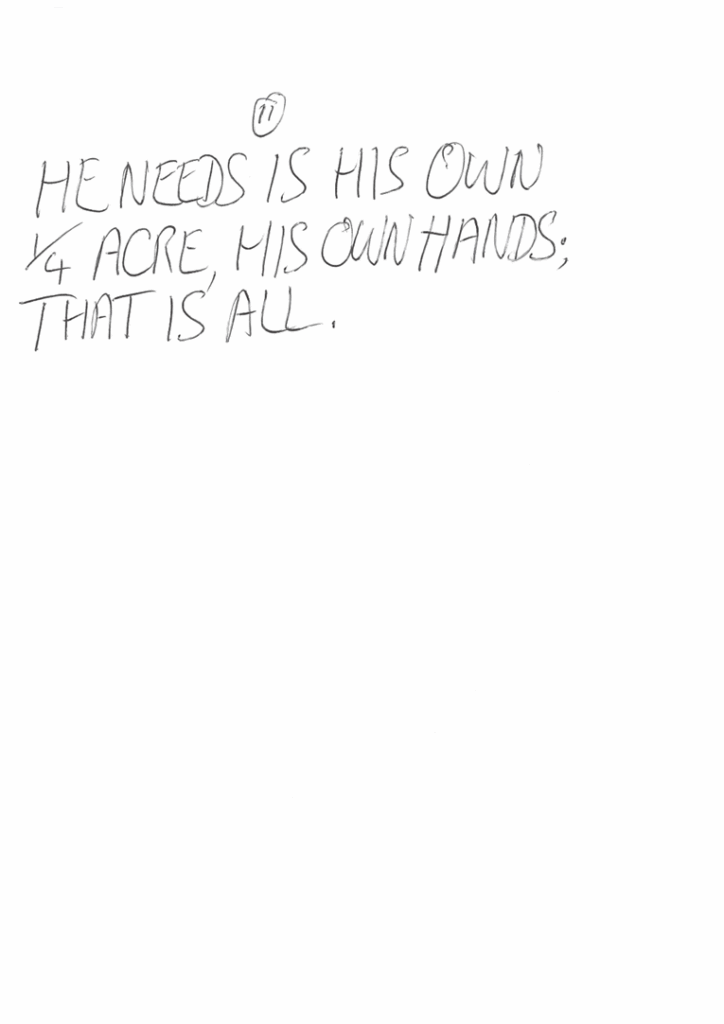 11
HE NEEDS IS HIS OWN
1/4 ACRE, HIS OWN HANDS;
THAT IS ALL.